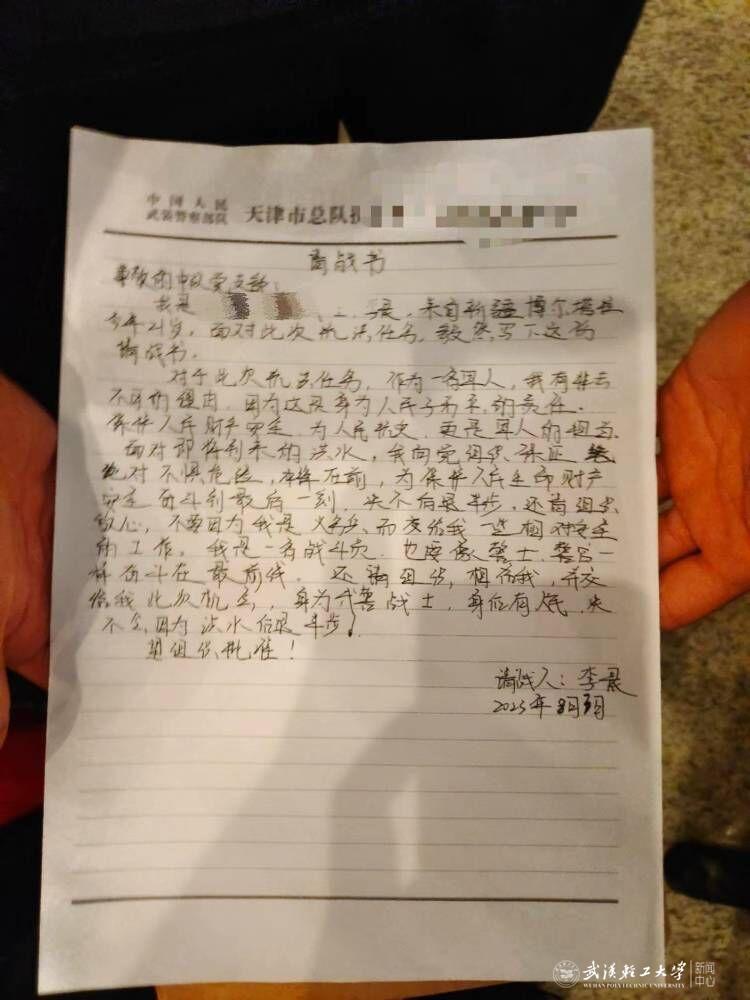 中国人民
武装警察部队 天津市总队
请战书
尊敬的中队党支部：
我是 李晨，来自新疆博尔塔拉
今年21岁，面对此次抗洪任务，毅然写下这份
请战书。
对于此次抗洪任务，作为一名军人，我有非去
不可的理由，因为这是身为人民子弟兵的责任。
保护人民财产安全，为人民抗灾，更是军人的担当。
面对即将到来的洪水，我向党组织保证
绝对不惧危险，冲锋在前，为保护人民生命财产
安全奋斗到最后一刻，决不后退半步，还请组织
放心，不要因为我是义务兵，而交给我一些相对安全
的工作。我是一名战斗员，也要像警士、警官一
样奋斗在最前线。还请组织，相信我，并交
给我此次机会，身为武警战士，身后有人民，决
不会因为洪水后退半步！
望组织批准！
请战人：李晨
2023年8月
武汉轻工大学
WUHAN POLYTECHNIC UNIVERSITY
新闻
中心